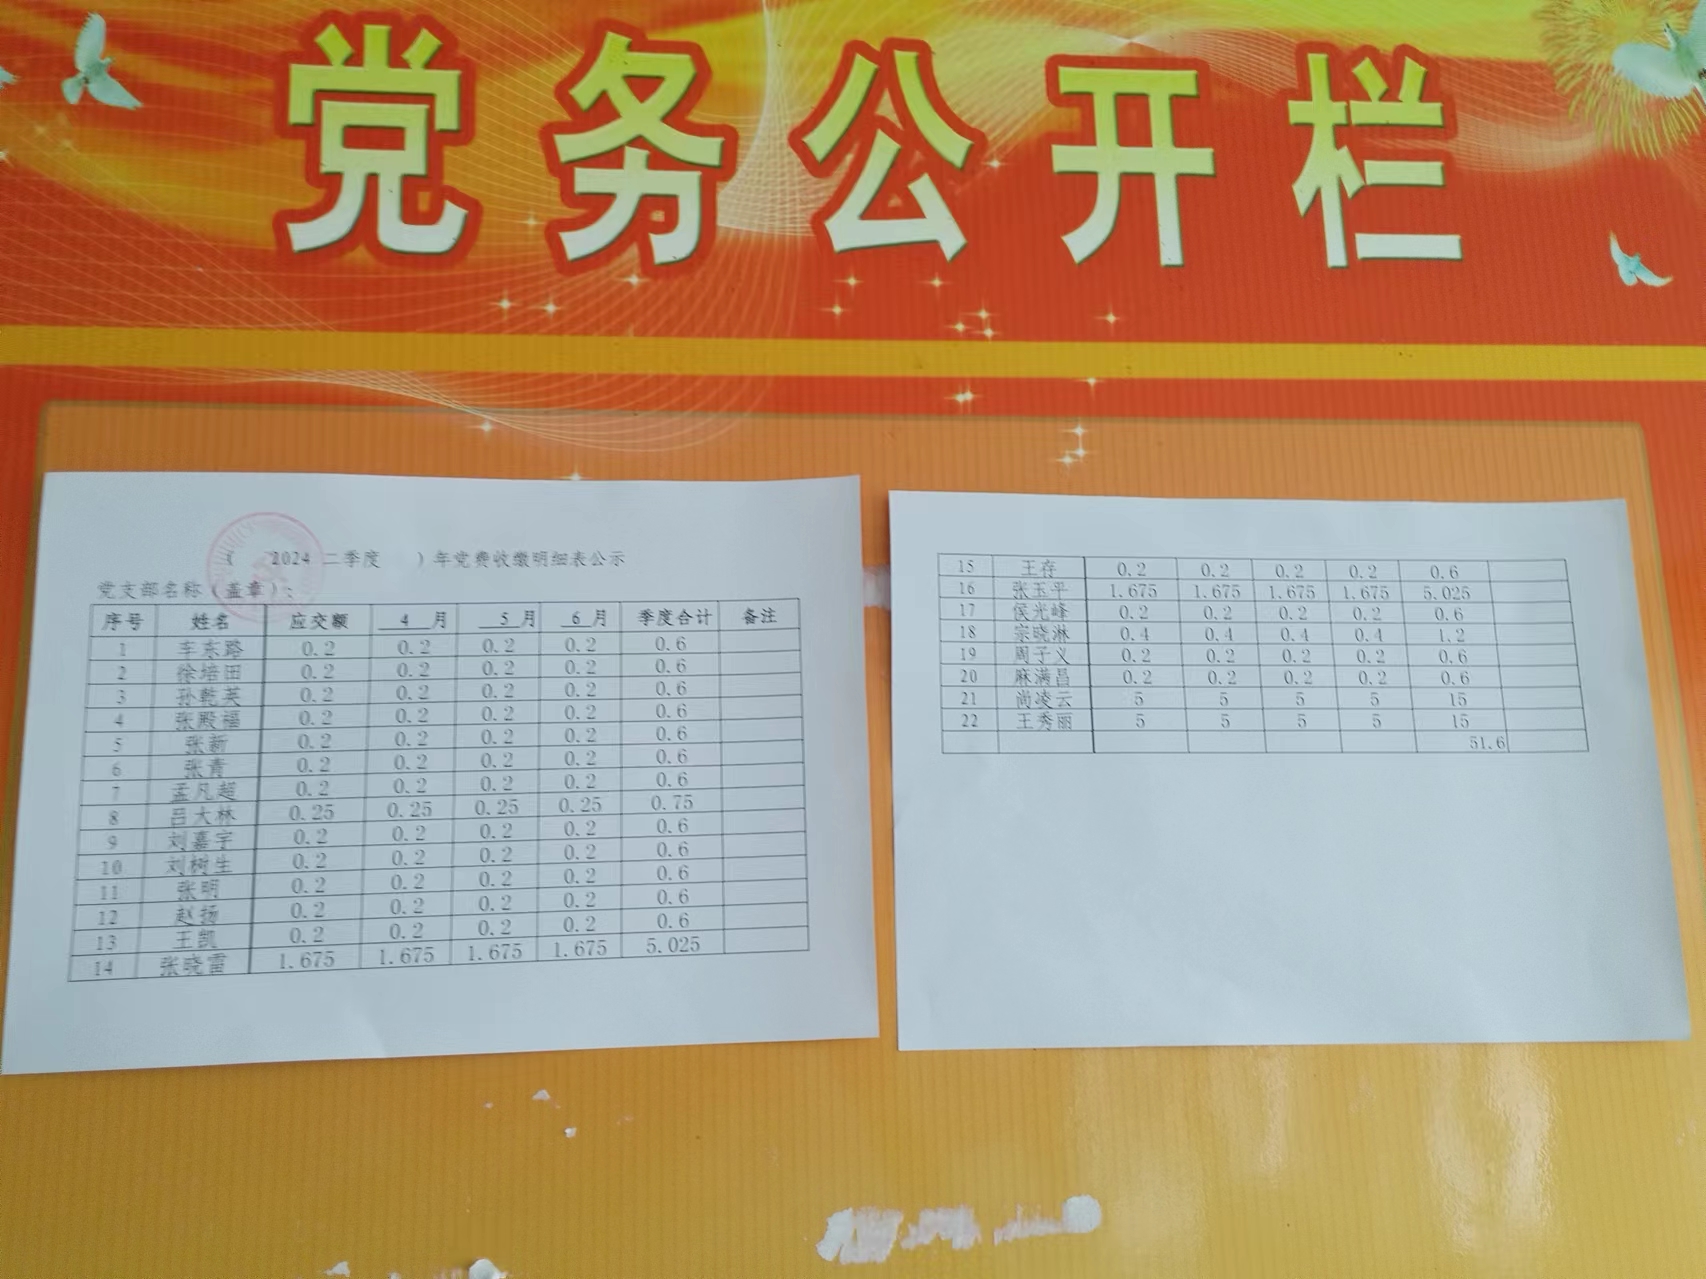 党务公开栏
( 2024 二季度 )年党费收缴明细表公示
党支部名称(盖章):
序号 姓名 应交额 4 月 5 月 6 月 季度合计 备注
1 车东路 0.2 0.2 0.2 0.2 0.6
2 徐培田 0.2 0.2 0.2 0.2 0.6
3 孙乾英 0.2 0.2 0.2 0.2 0.6
4 张殿福 0.2 0.2 0.2 0.2 0.6
5 张新 0.2 0.2 0.2 0.2 0.6
6 张青 0.2 0.2 0.2 0.2 0.6
7 孟凡超 0.2 0.2 0.2 0.2 0.6
8 吕大林 0.25 0.25 0.25 0.25 0.75
9 刘嘉宇 0.2 0.2 0.2 0.2 0.6
10 刘树生 0.2 0.2 0.2 0.2 0.6
11 张明 0.2 0.2 0.2 0.2 0.6
12 赵扬 0.2 0.2 0.2 0.2 0.6
13 王凯 0.2 0.2 0.2 0.2 0.6
14 张晓雷 1.675 1.675 1.675 1.675 5.025
15 王存 0.2 0.2 0.2 0.2 0.6
16 张玉平 1.675 1.675 1.675 1.675 5.025
17 侯光峰 0.2 0.2 0.2 0.2 0.6
18 宗晓淋 0.4 0.4 0.4 0.4 1.2
19 周子义 0.2 0.2 0.2 0.2 0.6
20 麻满昌 0.2 0.2 0.2 0.2 0.6
21 尚凌云 5 5 5 5 15
22 王秀丽 5 5 5 5 15
51.6